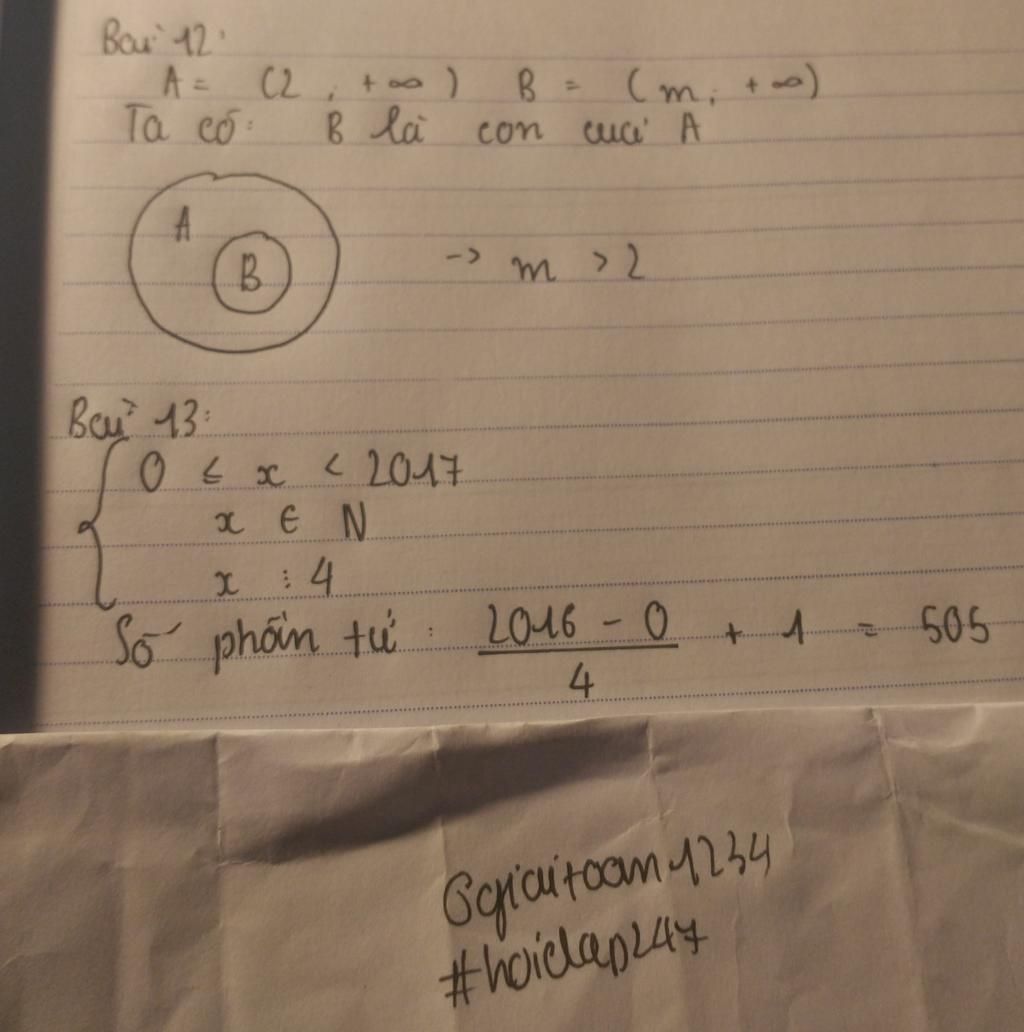 Bài 12:
A = (2; +∞) B = (m; +∞)
Ta có: B là con của A
A
B
-> m > 2
Bài 13:
0 ≤ x < 2017
x ∈ N
x ⋮ 4
Số phần tử: \frac{2016 - 0}{4} + 1 = 505
@giaitoan1234
#hoidap247